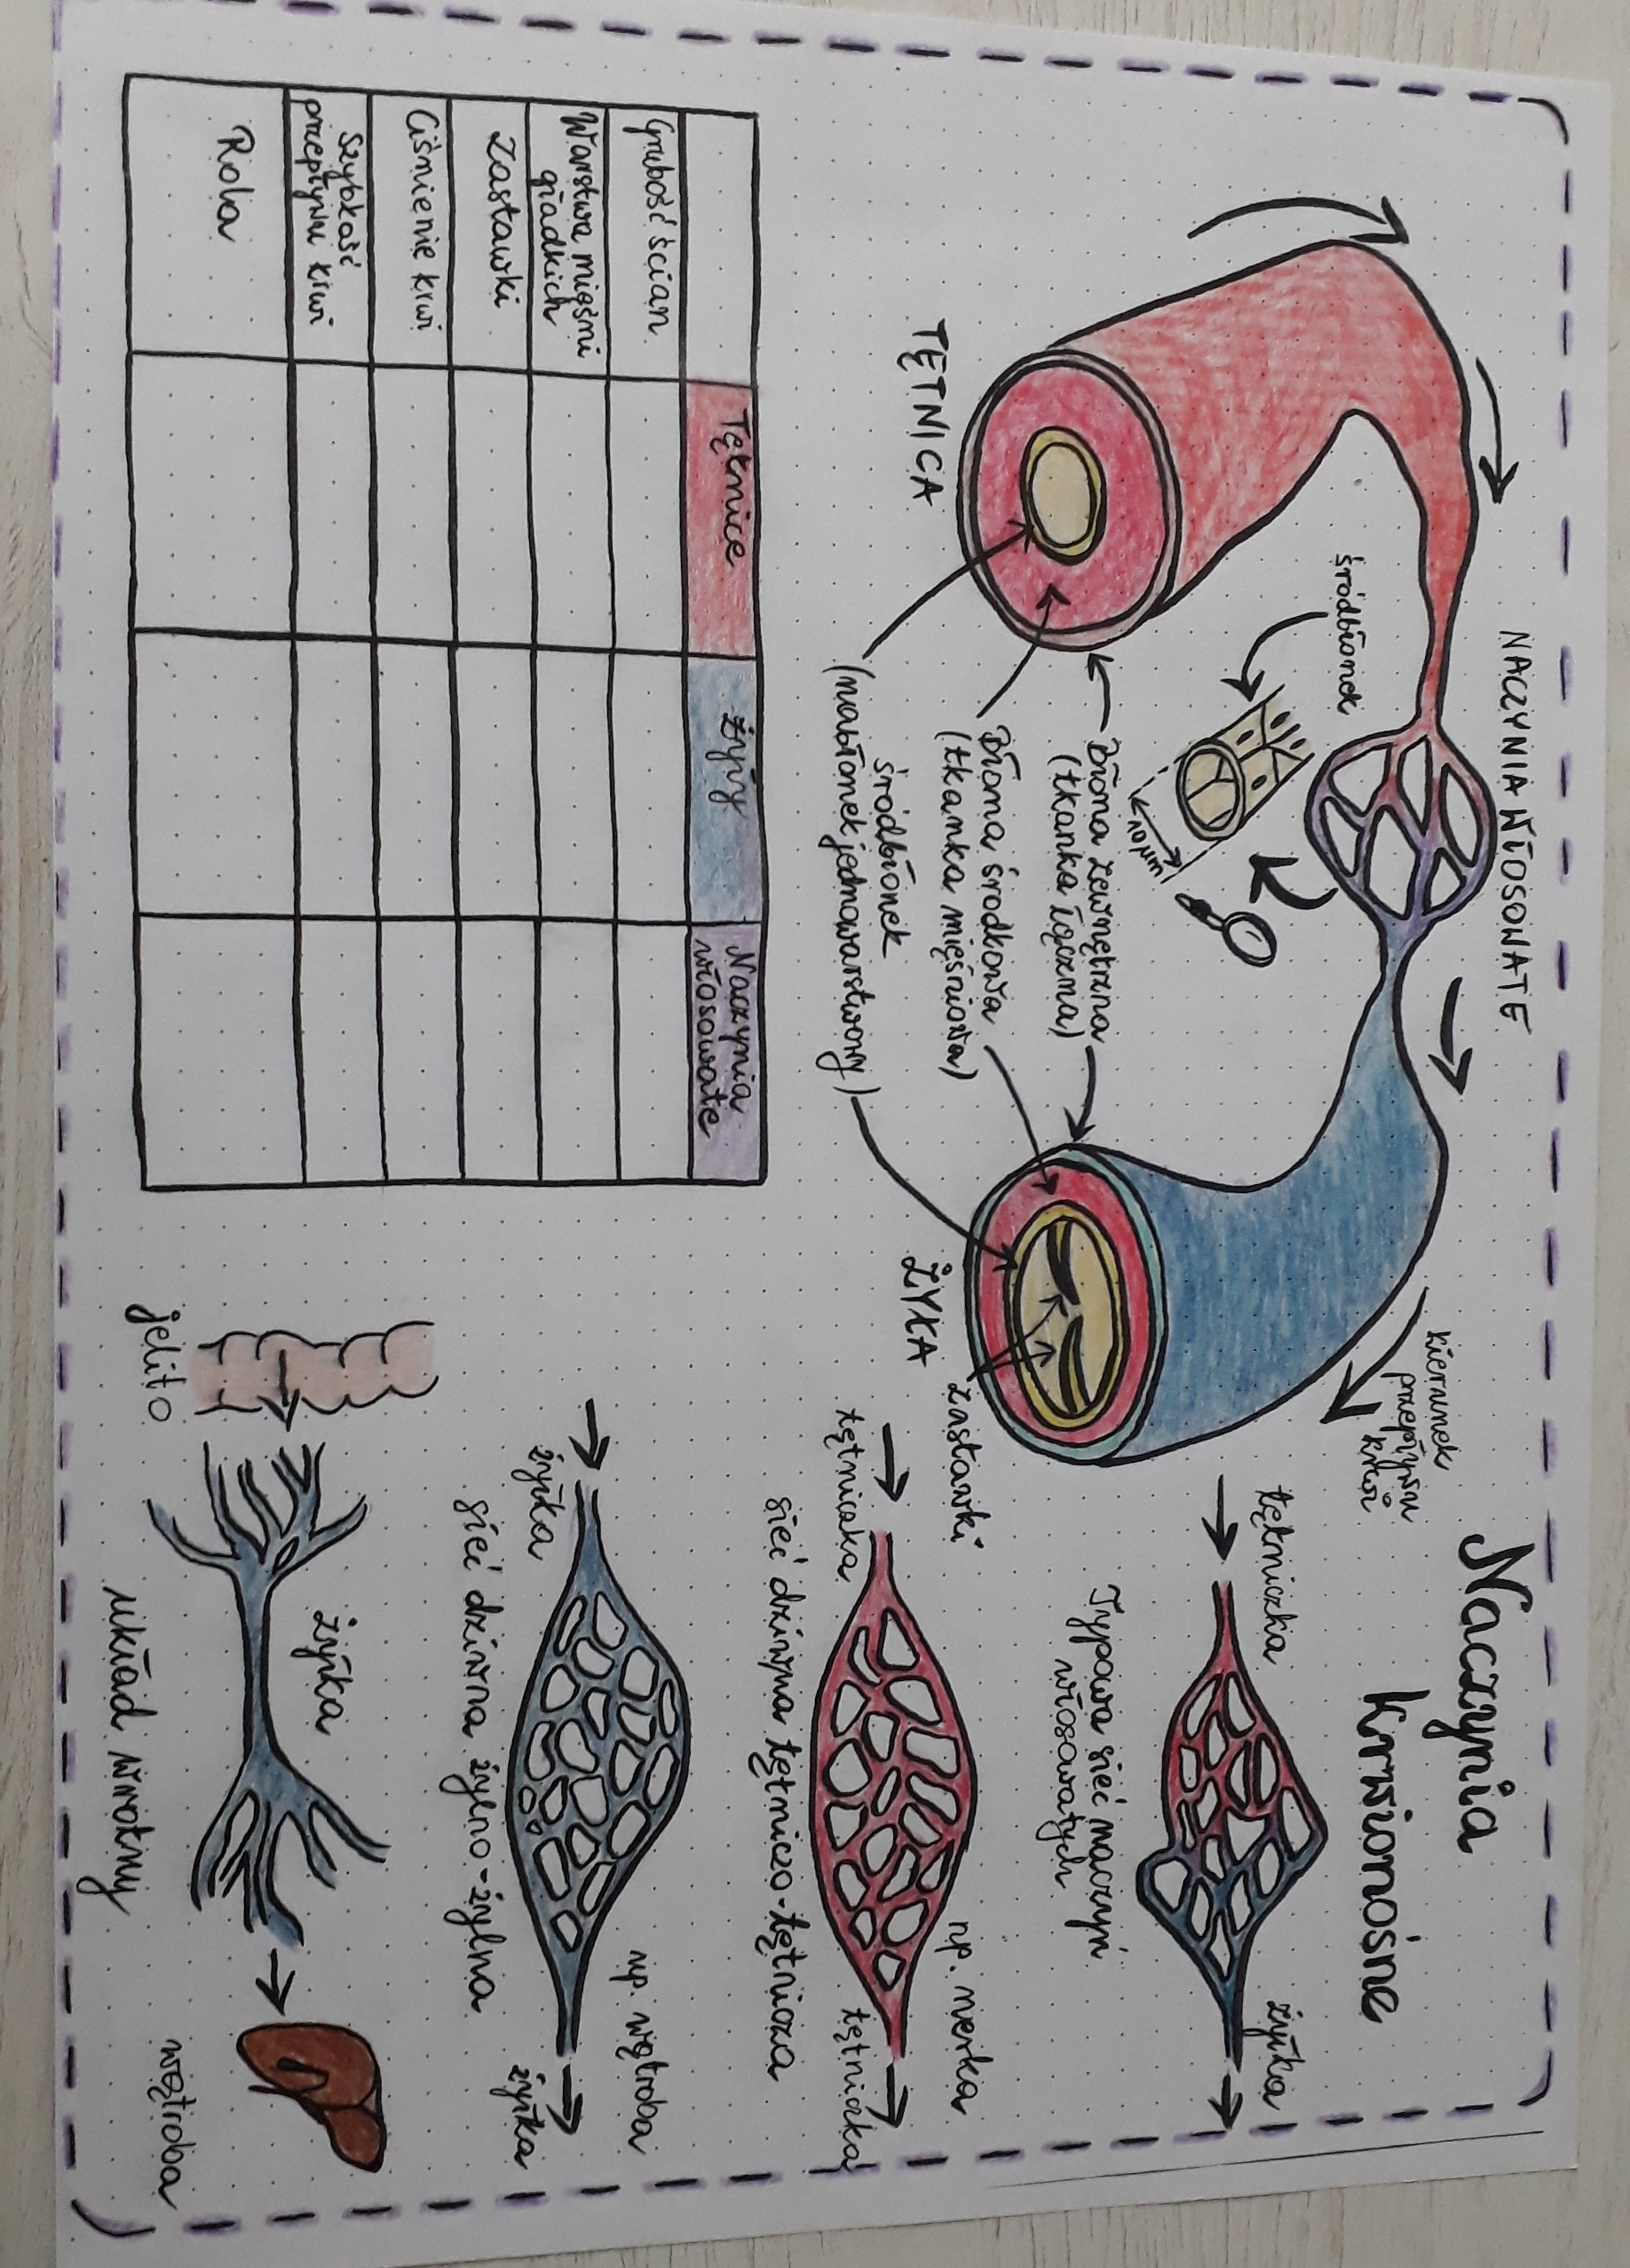 Naczynia
Krwionośne
NACZYNIA WŁOSOWATE
śródbłonek
10 µm
kierunek
przepływu
krwi
TĘTNICA
błona zewnętrzna
(tkanka łączna)
błona środkowa
(tkanka mięśniowa)
śródbłonek
(nabłonek jednowarstwowy)
ŻYŁA
zastawki
Tętnice
żyły
Naczynia
włosowate
Grubość ścian
Warstwa mięśni
gładkich
Zastawki
Ciśnienie krwi
Szybkość
przepływu krwi
Rola
tętniczka
żyłka
Typowa sieć naczyń
włosowatych
np. nerka
tętniczka
tętniczka
sieć dziwna tętniczo-tętnicza
np. wątroba
żyłka
żyłka
sieć dziwna żylno-żylna
żyłka
jelito
układ wrotny
wątroba